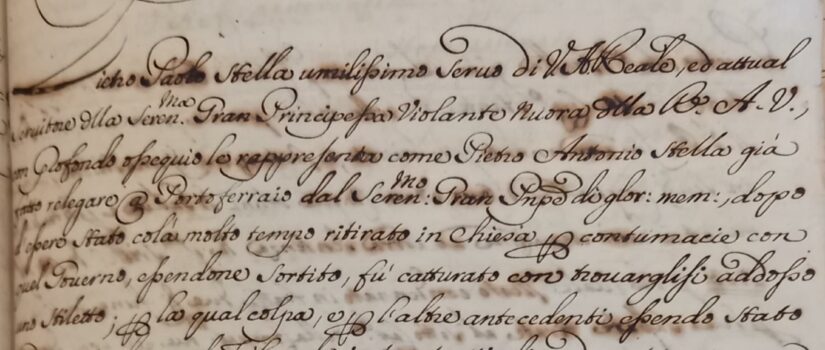 Pietro Paolo Stella umilissimo Servo di V. A. Reale, ed attual
Servitore dlla Seren:ma Gran Principessa Violante Nuora dlla R. A. V.,
con profondo ossequio le rappresenta come Pietro Antonio Stella già
stato relegato a Portoferraio dal Seren:mo Gran Pnpe di glor: mem:, dopo
d'essere stato colà molto tempo ritirato in Chiesa p contumacie con
quel Governo, essendone sortito, fù catturato con trovarglisi addosso
uno Stiletto; p la qual colpa, e p l'altre antecedenti essendo stato